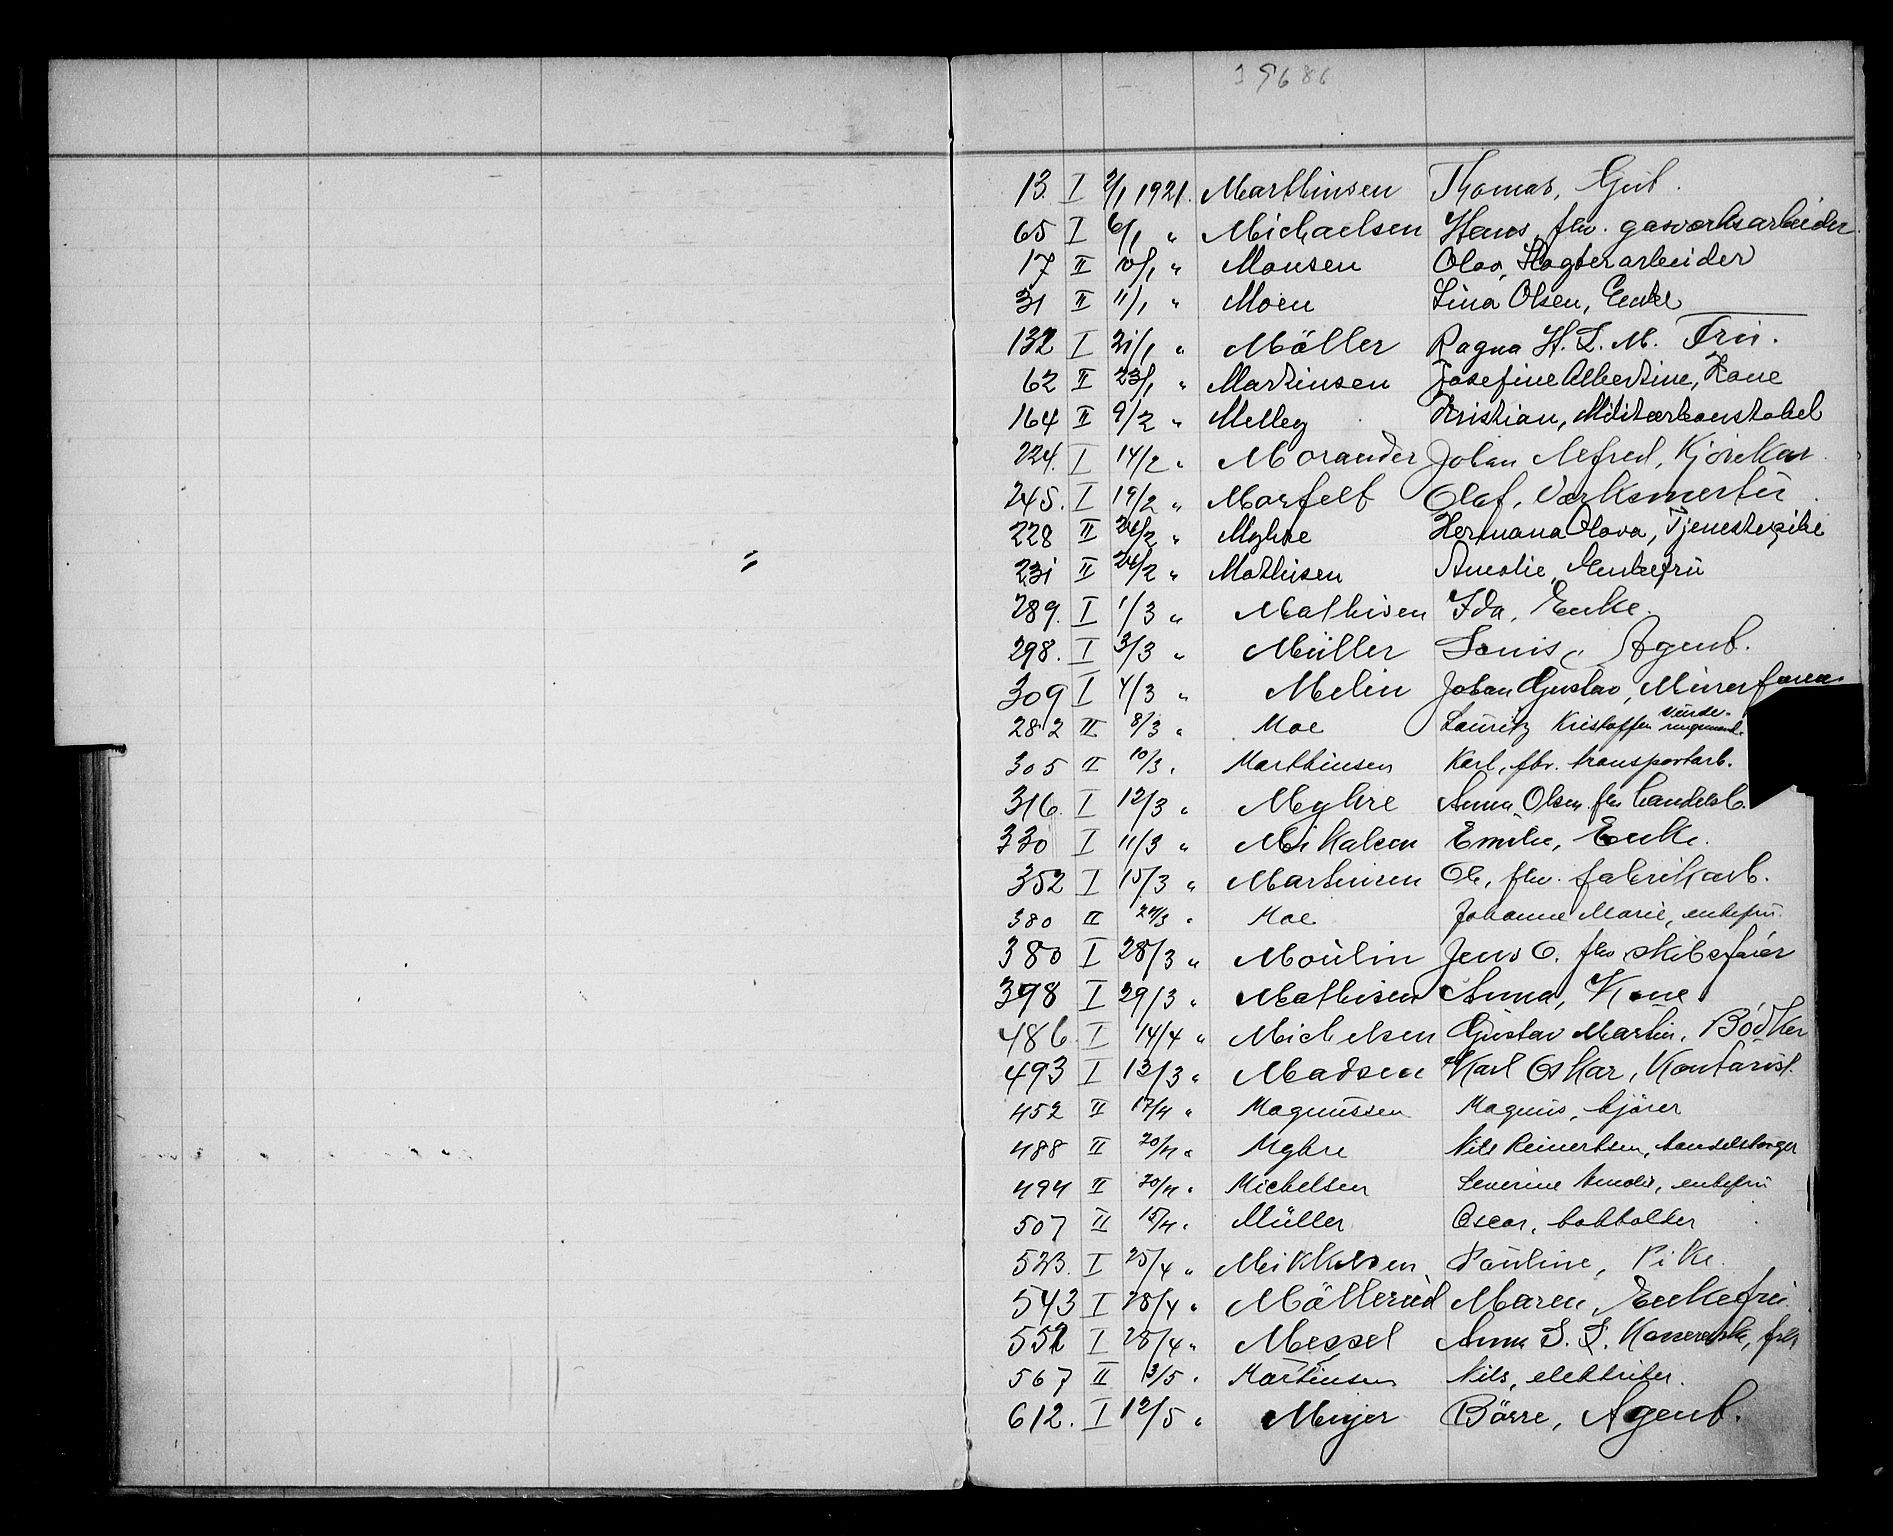 19686
13. I 3/1 1921. Marthinsen Thomas, Gut.
65 I 6/1 " Michaelsen Hans, fhv. gasværksarbeider
17 II 10/1 " Monsen Olav, Slagterarbeider
31 II 11/1 " Moen Lina Olsen, Enke
132 I 21/1 " Möller Ragna H. L. M. Frü.
62 II 23/1 " Martinsen Josefine Albertine, Kone
164 II 9/2 " Melleg Kristian, Militærkonstabel
224. I 14/2 " Morander Johan Alfred, Kjörekar.
245. I 19/2 " Morfelt Olaf, Værksmester.
228 II 24/2 " Myhre Hermana Olava, Tjenestepike
231 II 24/2 " Mathisen Amalie, Enkefrü
289. I 1/3 " Mathisen Ida, Enke.
298. I 3/3 " Müller Louis, Agent.
309 I 4/3 " Melin Johan Gustav, Minerforma
282 II 8/3 " Moe Lauritz Kristoffen vurde-
ringsmand.
305 II 10/3 " Marthinsen Karl, fhv. transportarb.
316. I 12/3 " Myhre Anna Olsen fhv handelsb.
330 I 11/3 " Mikalsen Emilie, Enke.
352 I 15/3 " Martinsen Ole, fhv. fabrikarb.
380 II 24/3 " Moe Johanne Marie, enkefrü.
380 I 28/3 " Moülin Jens O. fhv skibsfører
398 I 29/3 " Mathisen Anna, Kone
486. I 14/4 " Michelsen Gustav Martin, Bödker
493 I 13/3 " Madsen Karl Oskar, Kontorist.
452 II 17/4 " Magnussen Magnus, kjörer
488 II 20/4 " Myhre Nils Reinertsen, handelsborger
494 II 20/4 " Michelsen Severine Amalie, enkefrü
507 II 15/4 " Müller Oscar, bokholder
523. I 25/4 " Mikkelsen Pauline, Pike.
543 I 28/4 " Mölleröd Maren, Enkefrü
552 I 28/4 " Messel Anna S. L.
567 II 3/5 " Martinsen Nils, elektriker.
612. I 12/5 " Meyer Börre, Agent.